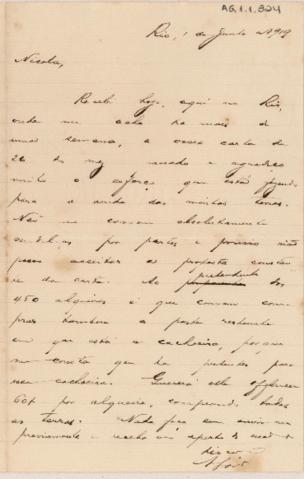 AG.1.1.324
Rio, 1 de Junho de 1919
Nicola,
Recebi hoje, aqui no Rio,
onde me acho ha mais de
uma semana, a vossa carta de
26 de maio e agradeço
muito o esforço que estás fazendo
para a venda das minhas terras.
Não me convem absolutamente
vendel-as por partes e por isso não
posso acceitar a proposta constan
te da carta. Ao pretendente dos
450 alqueires é que convem com
prar tambem a parte restante
em que está a cachoeira, porque
me consta que ha pretendes para
essa cachoeira. Quererá elle offerecer
60$ por alqueire, comprando todas
as terras. Nada faça sem ouvir-me
previamente e receba um aperto de mão